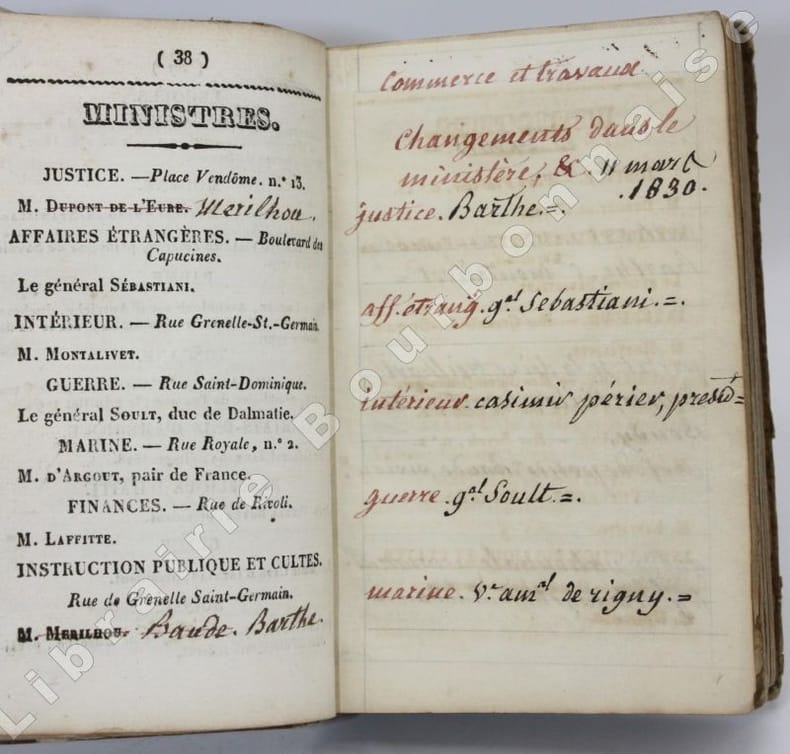 ( 38 )
MINISTRES.
JUSTICE. — Place Vendôme. n.º 13.
M. DUPONT DE L'EURE. Merilhou.
AFFAIRES ÉTRANGÈRES. — Boulevard des
Capucines.
Le général SÉBASTIANI.
INTÉRIEUR. — Rue Grenelle-St.-Germain.
M. MONTALIVET.
GUERRE. — Rue Saint-Dominique.
Le général SOULT, duc de Dalmatie.
MARINE. — Rue Royale, n.º 2.
M. D'ARGOUT, pair de France.
FINANCES. — Rue de Rivoli.
M. LAFFITTE.
INSTRUCTION PUBLIQUE ET CULTES.
Rue de Grenelle Saint-Germain.
M. MERILHOU. Baude. Barthe.
Commerce et travaux
Changements dans le
ministère, & 11 mars
.1830.
justice. Barthe.=.
aff. étrang. gal Sebastiani.=.
intérieur. casimir périer, présid=
guerre. gal Soult.=.
marine. Ve amal de rigny.=
Librairie Bourbonnaise